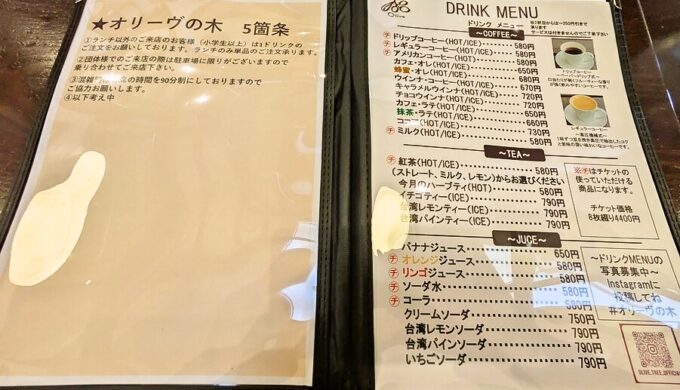 ★オリーヴの木 5箇条
①ランチ以外のご来店のお客様(小学生以上)は1ドリンクの
ご注文をお願いしております。ランチのみ単品のご注文承ります。
②団体様でのご来店の際は駐車場に限りがございますので
乗り合わせてご来店下さい。
の時間を90分制にしておりますので
ご協力お願いします。
④以下考え中
Olive
DRINK MENU
ドリンク メニュー
～COFFEE～
㋠ドリップコーヒー(HOT/ICE) 580円
㋠レギュラーコーヒー(HOT/ICE) 580円
㋠アメリカンコーヒー(HOT/ICE) 580円
カフェ・オレ(HOT/ICE) 650円
蜂蜜・オレ(HOT/ICE) 650円
ウインナーコーヒー(HOT/ICE) 670円
キャラメルウインナ(HOT/ICE) 720円
チョコウインナ(HOT/ICE) 720円
カフェ・ラテ(HOT/ICE) 650円
抹茶・ラテ(HOT/ICE) 660円
ココア(HOT/ICE) 730円
㋠ミルク(HOT/ICE) 580円
ドリップコーヒー
レギュラーコーヒー
～TEA～
㋠紅茶(HOT/ICE) 580円
(ストレート、ミルク、レモン)からお選びください
今月のハーブティ(HOT) 580円
イチゴティー(ICE) 790円
台湾レモンティー(ICE) 790円
台湾パインティー(ICE) 790円
※㋠はチケットの
使っていただける
商品になります。
チケット価格
8枚綴り4400円
～JUCE～
バナナジュース 650円
㋠オレンジジュース 580円
㋠リンゴジュース 580円
㋠ソーダ水 580円
㋠コーラ 580円
クリームソーダ 750円
台湾レモンソーダ 790円
台湾パインソーダ 790円
いちごソーダ 790円
～ドリンクMENUの
写真募集中～
Instagramに
投稿してね
#オリーヴの木